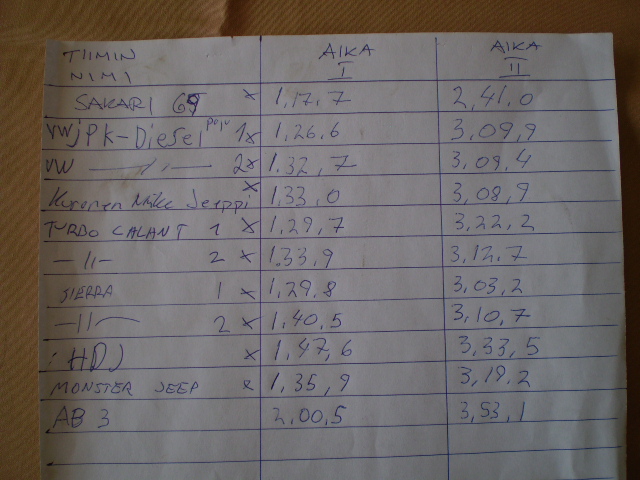 TIIMIN NIMI AIKA I AIKA II
SAKARI 69 x 1,17,7 2,41,0
VWJPK-Diesel pojo 1x 1,26,6 3,09,9
VW —〃— 2x 1.32,7 3,09,4
Mika Jeeppi x 1,33,0 3,08,9
TURBO GALANT 1 x 1,29,7 3,22,2
—〃— 2 x 1.33,9 3,12,7
SIERRA 1 x 1,29,8 3,03,2
—〃— 2 x 1,40,5 3,10,7
: HDJ x 1,47,6 3,33,5
MONSTER JEEP x 1,35,9 3,19,2
AB 3 2,00,5 3,53,1